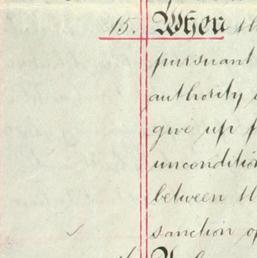 15. When th
pursuant
authority
give up f
unconditio
between th
sanction of